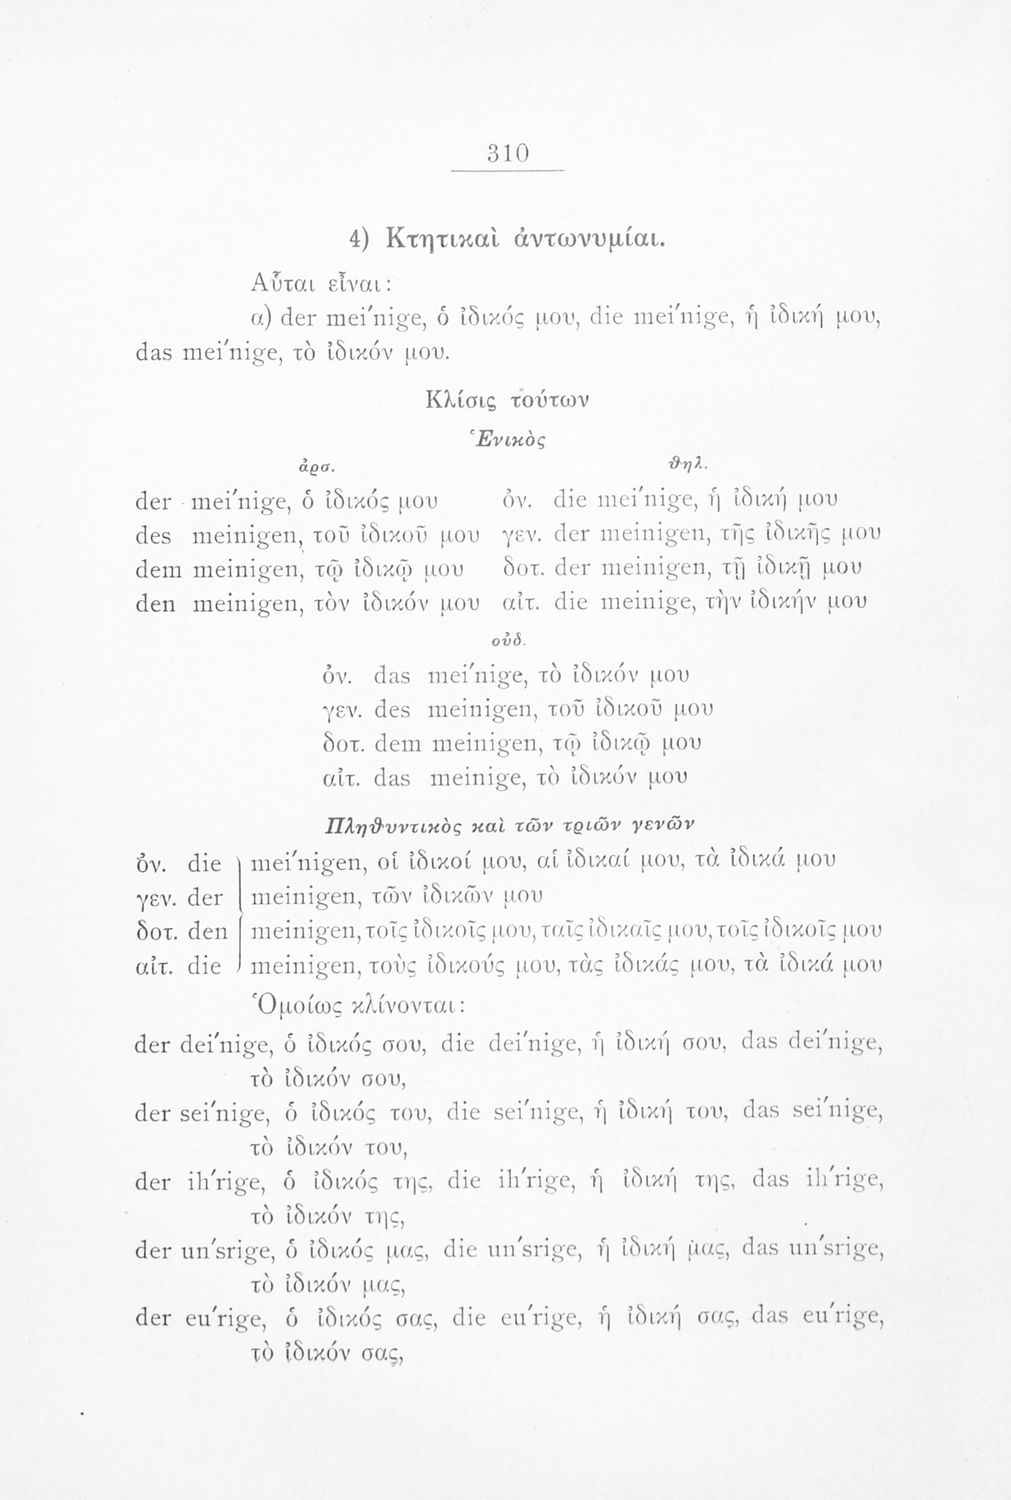 310
4) Κτητικαὶ ἀντωνυμίαι.
Αὗται εἶναι:
α) der mei′nige, ὁ ἰδικός μου, die mei′nige, ἡ ἰδική μου,
das mei′nige, τὸ ἰδικόν μου.
Κλίσις τούτων
Ἑνικὸς
ἀρσ. θηλ.
der mei′nige, ὁ ἰδικός μου ὀν. die mei′nige, ἡ ἰδική μου
des meinigen, τοῦ ἰδικοῦ μου γεν. der meinigen, τῆς ἰδικῆς μου
dem meinigen, τῷ ἰδικῷ μου δοτ. der meinigen, τῇ ἰδικῇ μου
den meinigen, τὸν ἰδικόν μου αἰτ. die meinige, τὴν ἰδικήν μου
οὐδ.
ὀν. das mei′nige, τὸ ἰδικόν μου
γεν. des meinigen, τοῦ ἰδικοῦ μου
δοτ. dem meinigen, τῷ ἰδικῷ μου
αἰτ. das meinige, τὸ ἰδικόν μου
Πληθυντικὸς καὶ τῶν τριῶν γενῶν
ὀν. die mei′nigen, οἱ ἰδικοί μου, αἱ ἰδικαί μου, τὰ ἰδικά μου
γεν. der meinigen, τῶν ἰδικῶν μου
δοτ. den meinigen, τοῖς ἰδικοῖς μου, ταῖς ἰδικαῖς μου, τοῖς ἰδικοῖς μου
αἰτ. die meinigen, τοὺς ἰδικούς μου, τὰς ἰδικάς μου, τὰ ἰδικά μου
Ὁμοίως κλίνονται:
der dei′nige, ὁ ἰδικός σου, die dei′nige, ἡ ἰδική σου, das dei′nige,
τὸ ἰδικόν σου,
der sei′nige, ὁ ἰδικός του, die sei′nige, ἡ ἰδική του, das sei′nige,
τὸ ἰδικόν του,
der ih′rige, ὁ ἰδικός της, die ih′rige, ἡ ἰδική της, das ih′rige,
τὸ ἰδικόν της,
der un′srige, ὁ ἰδικός μας, die un′srige, ἡ ἰδική μας, das un′srige,
τὸ ἰδικόν μας,
der eu′rige, ὁ ἰδικός σας, die eu′rige, ἡ ἰδική σας, das eu′rige,
τὸ ἰδικόν σας,